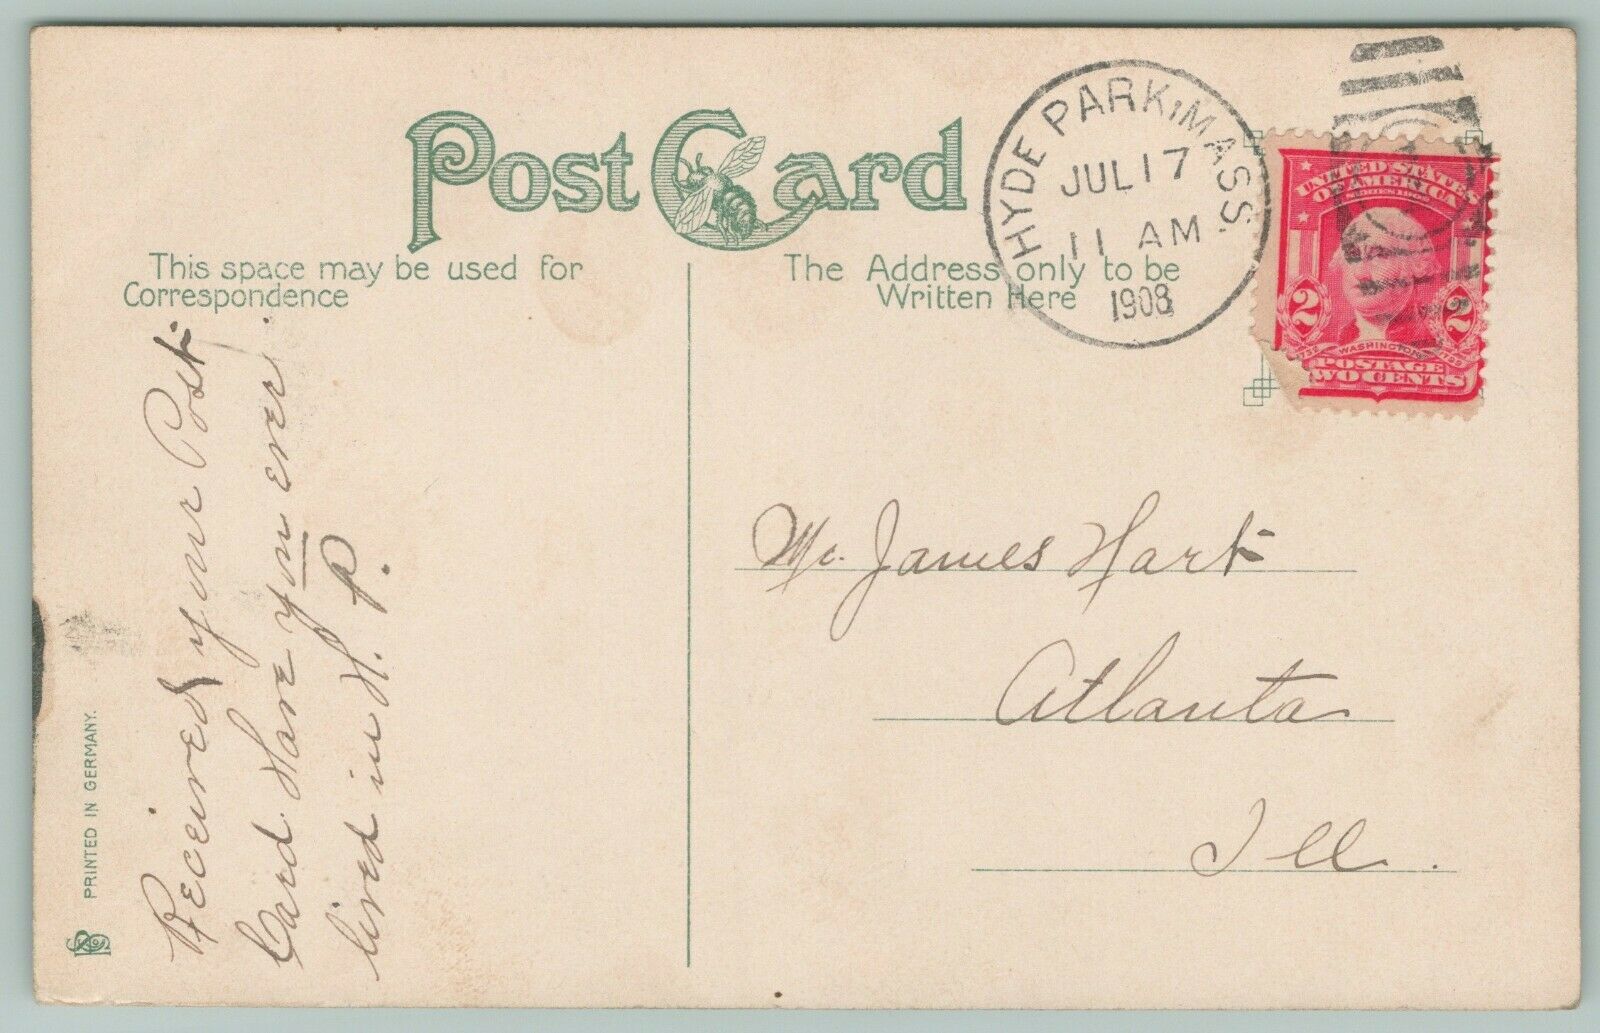 Post Card
This space may be used for
Correspondence
The Address only to be
Written Here
HYDE PARK, MASS.
JUL 17
11 AM
1908
UNITED STATES
OF AMERICA
2 2
WASHINGTON
POSTAGE
TWO CENTS
Received your Post
Card Have you ever
lived in H. P.
Mr. James Hart
Atlanta
Ill.
PRINTED IN GERMANY.